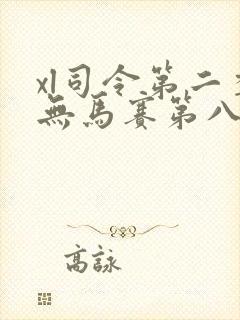 xl司令第二
無馬賽第八
高詠